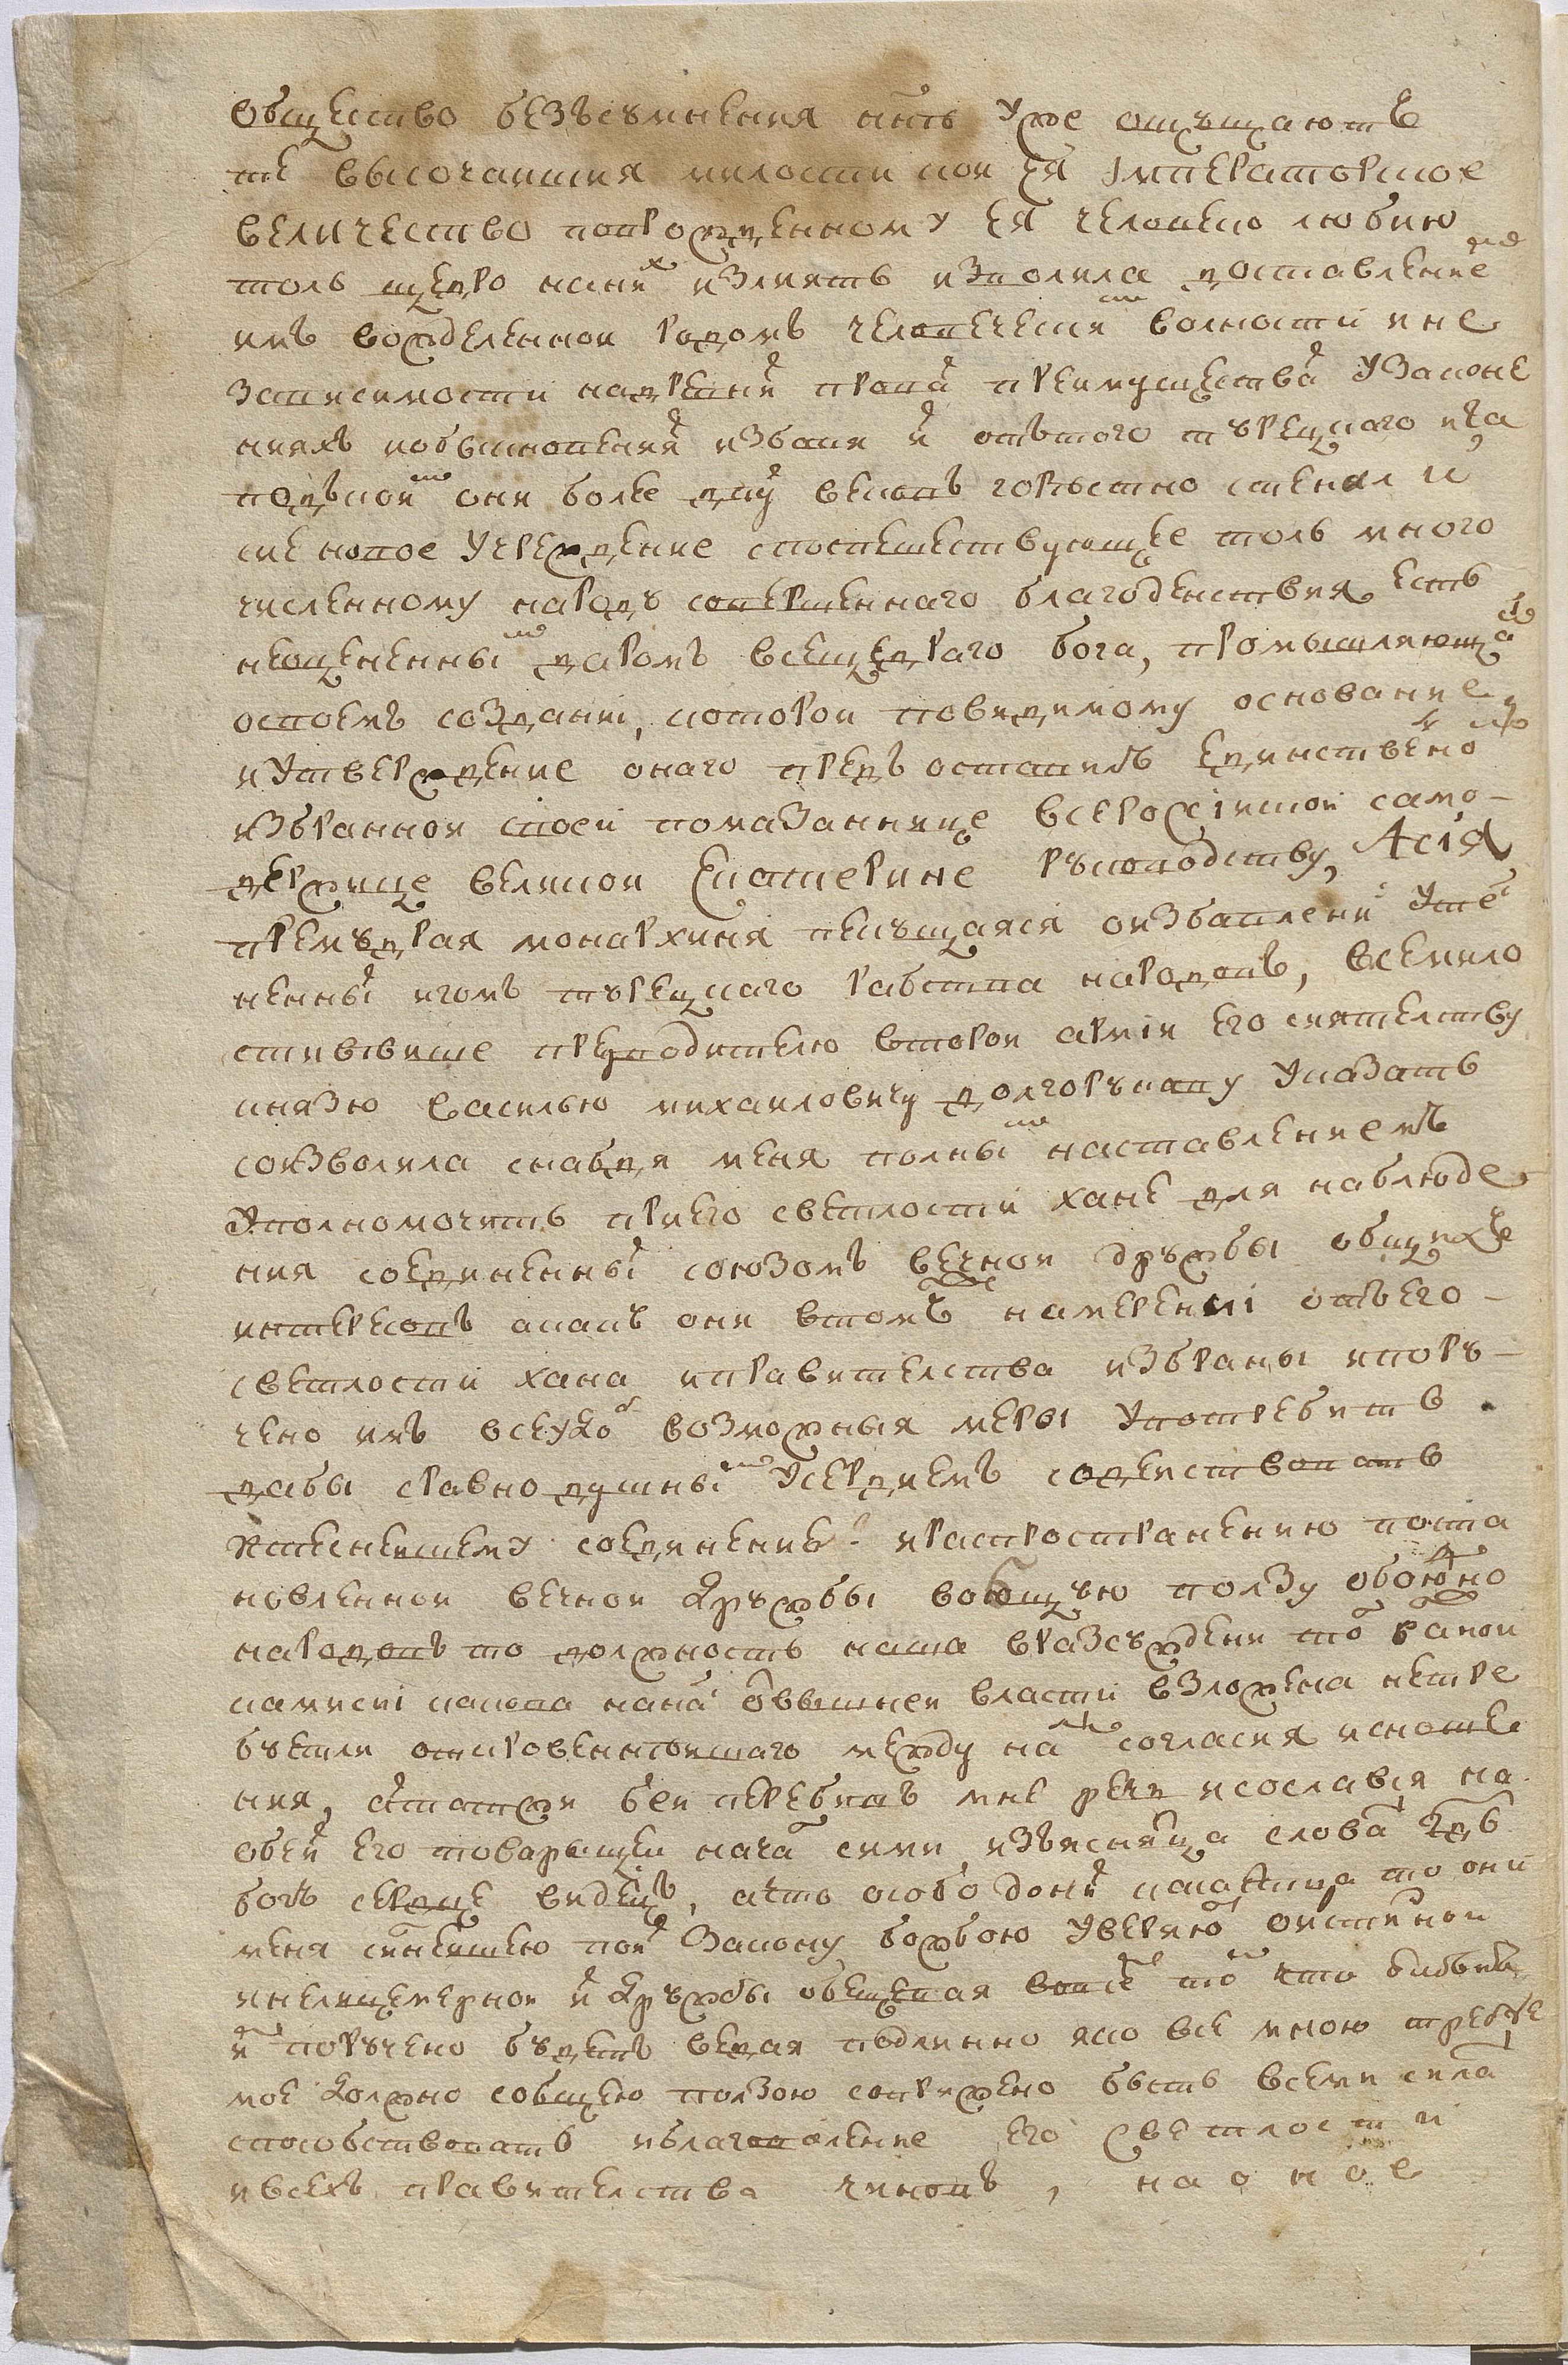 общество безъсумнения нынѣ уже ощущаютъ
те высочаишия милости кои ея Імператорское
величество повро​жденному ея человеколюбию
толь щедро наних излиять изволила доставлениемъ
имъ вожделеннои родомъ человеческимъ волности и не
зависимости надревнихъ правахъ преимуществахъ узаконе
нияхъ иобыкновенияхъ избавя ихъ отътого турецкого ига
подъкоимъ они более двухъ вековъ горестно стенали
сие новое учреждение споспешествующее толь много
численному народу совершеннаго благоденствия есть
неоцененныи даромъ всещедраго бога, промышляющаго
освоемъ создании, которои повидимому основание
иутверждение онаго предъоставилъ единственно
избраннои своеи помазаннице всероссіискои само-
держице великои Екатерине руководству, Асія
премудрая монархиня пекущаяся оизбавлении утес
ненныхъ игомъ турецкаго рабства народовъ, всемило
стивеише предводителю второи арміи его сиятелству
князю василью михаиловичу долгорукову указать
соизволила снабдя меня полнымъ наставлениемъ
уполномочить приего светлости хане для наблюде
ния соединенныхъ союзомъ вечнои дружбы общихъ
интересовъ акакъ они втомъже намерении отъего-
светлости хана иправителства избраны ипору-
чено имъ всеудобо возможныя меры употребить
дабы сравнодушнымъ усердиемъ содеиствовать
ктеснеишему соединению ираспространению поста
новленнои вечнои дружбы вобщую ползу обоюдно
народовъ то должность наша вразсуждении тои
какова нанасъ отъвышнеи власти взложена нетре
буетли откровеннеишаго между нами согласия исноше
ния, бeи перебивъ мне речь исославься на
обеихъ его товарыщеи начал сими изъяснятца словами
богъ сердце видецъ, ачто особо доних касаетца то они
меня святеишею поихъ закону божбою уверяют оистиннои
инелицемернои ихъ дружбы обещевая вовсемъ томъ что
имъ поручено будетъ ведая подлинно яко все мною требуе
мое должно собщею ползою сопряжено быть всеми силами
способствовать иблаговоление его светлости
ивсехъ правителства чиновъ, наоное